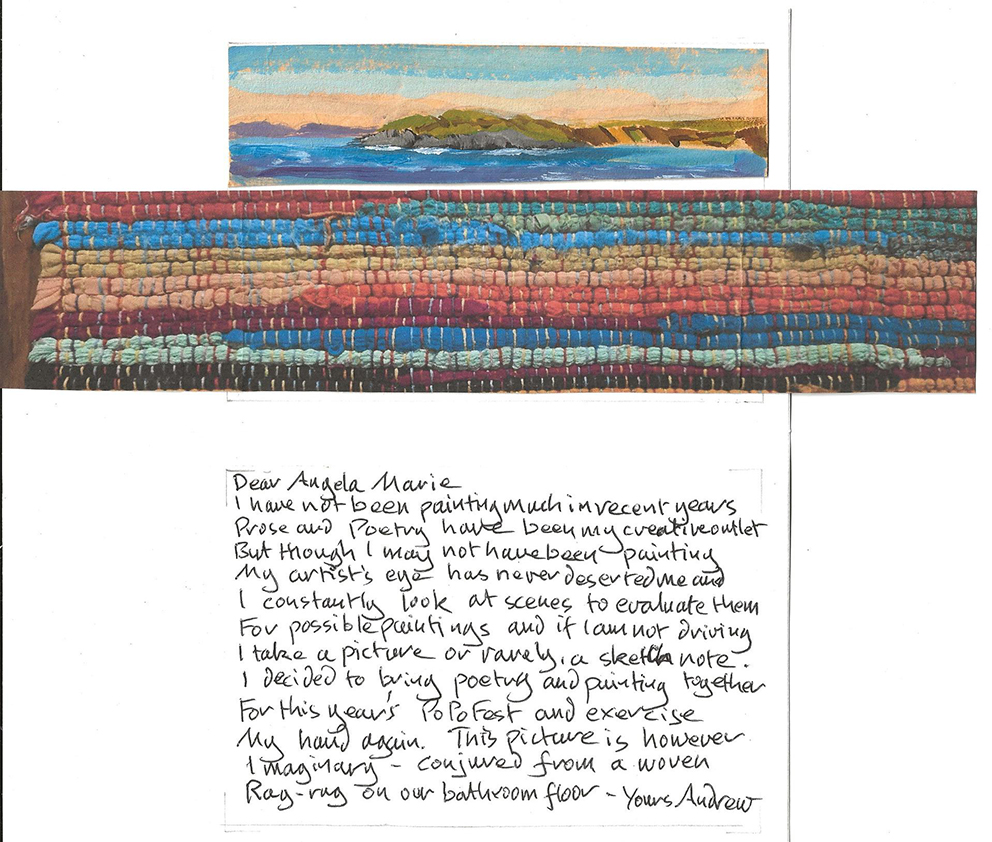 Dear Angela Marie
I have not been painting much in recent years
Prose and Poetry have been my creative outlet
But though I may not have been painting
My artist's eye has never deserted me and
I constantly look at scenes to evaluate them
For possible paintings and if I am not driving
I take a picture or rarely, a sketch note.
I decided to bring poetry and painting together
For this year's PoPoFest and exercise
My hand again. This picture is however
Imaginary - conjured from a woven
Rag-rug on our bathroom floor - Yours Andrew